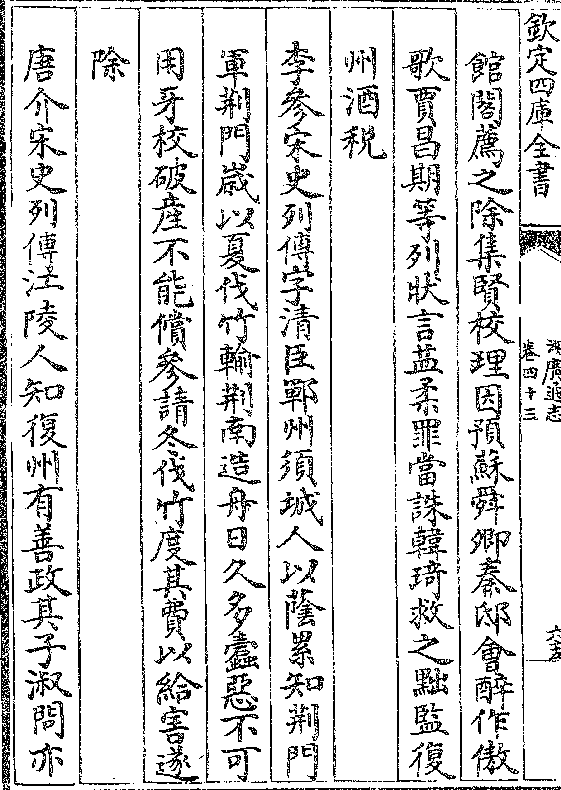 欽定四庫全書
湖廣通志
卷四十三
館閣薦之除集賢校理因預蘇舜卿奏邸會醉作傲
歌賈昌期等列狀言益柔罪當誅韓琦救之黜監復
州酒税
李參宋史列傳字清臣鄆州須城人以蔭累知荆門
軍荆門歲以夏伐竹輸荆南造舟日久多蠧惡不可
用牙校破産不能償參請冬伐竹度其費以給害遂
除
唐介宋史列傳江陵人知復州有善政其子淑問亦